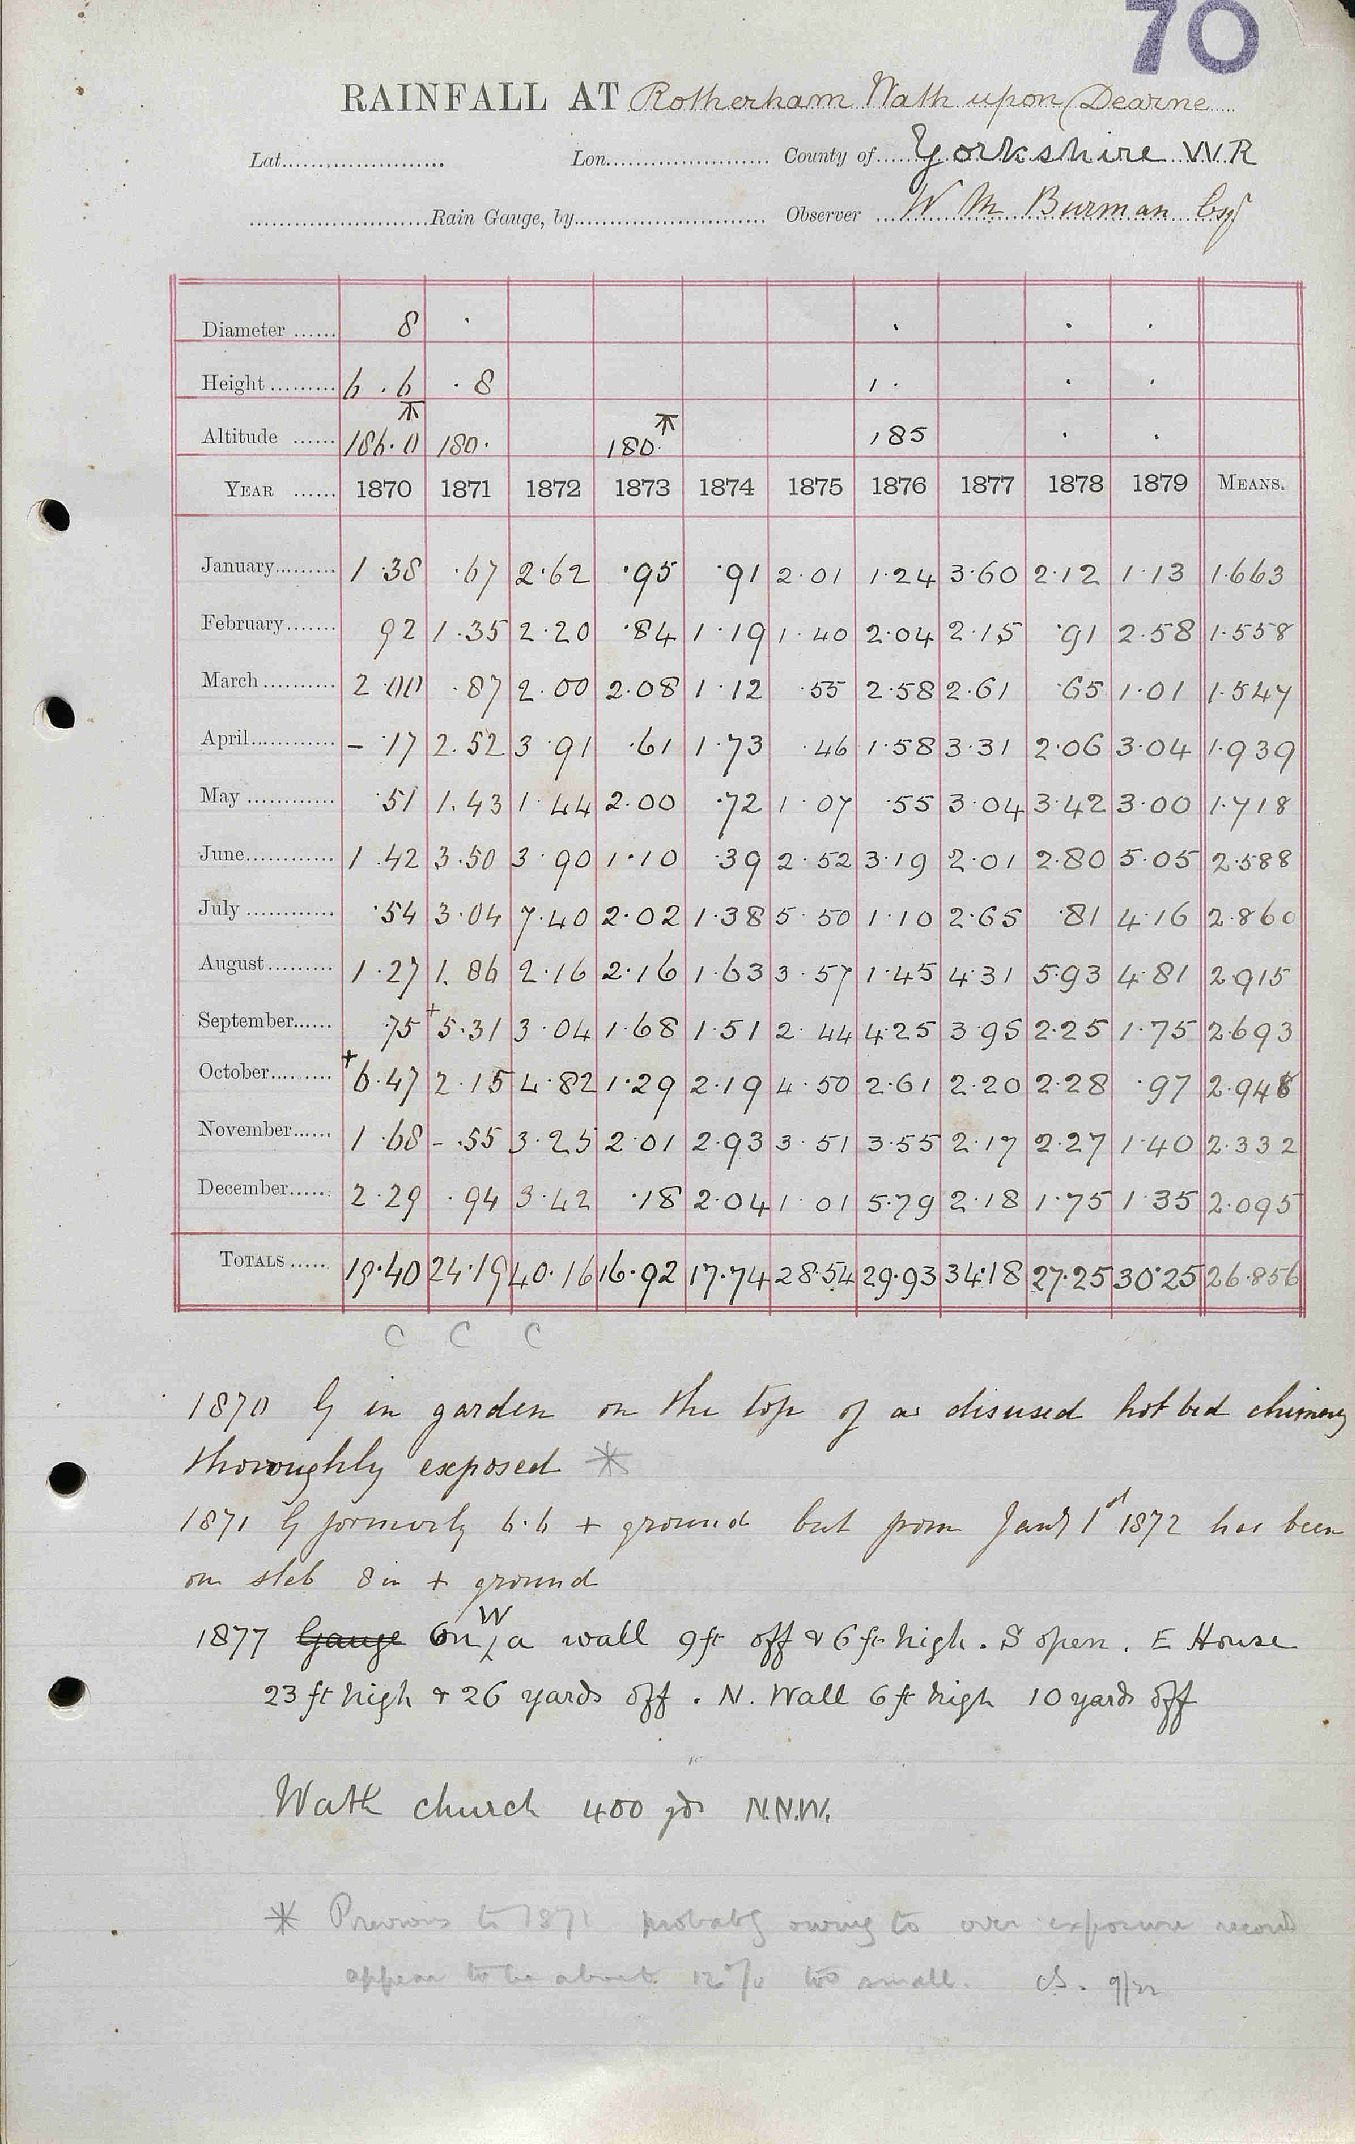 70
RAINFALL AT Rotherham Wath upon Dearne
Lat. Lon. County of Yorkshire W R
Rain Gauge, by Observer W M Burman Esqr
Diameter 8 · · · ·
Height 6.6 .8 1. · ·
Altitude 186.0 180. 180. 185 · ·
YEAR 1870 1871 1872 1873 1874 1875 1876 1877 1878 1879 MEANS.
January 1.38 .67 2.62 .95 .91 2.01 1.24 3.60 2.12 1.13 1.663
February 92 1.35 2.20 .84 1.19 1.40 2.04 2.15 .91 2.58 1.558
March 2.00 .87 2.00 2.08 1.12 .55 2.58 2.61 .65 1.01 1.547
April - .17 2.52 3.91 .61 1.73 .46 1.58 3.31 2.06 3.04 1.939
May .51 1.43 1.44 2.00 .72 1.07 .55 3.04 3.42 3.00 1.718
June 1.42 3.50 3.90 1.10 .39 2.52 3.19 2.01 2.80 5.05 2.588
July .54 3.04 7.40 2.02 1.38 5.50 1.10 2.65 .81 4.16 2.860
August 1.27 1.86 2.16 2.16 1.63 3.57 1.45 4.31 5.93 4.81 2.915
September .75 +5.31 3.04 1.68 1.51 2.44 4.25 3.95 2.25 1.75 2.693
October +6.47 2.15 4.82 1.29 2.19 4.50 2.61 2.20 2.28 .97 2.948
November 1.68 - .55 3.25 2.01 2.93 3.51 3.55 2.17 2.27 1.40 2.332
December 2.29 .94 3.42 .18 2.04 1.01 5.79 2.18 1.75 1.35 2.095
TOTALS 19.40 24.19 40.16 16.92 17.74 28.54 29.93 34.18 27.25 30.25 26.856
C C C
1870 G in garden on the top of a disused hot bed chimney
thoroughly exposed *
1871 G formerly 6.6 + ground but from Jany 1st 1872 has been
on slab 8 in + ground
1877 Gauge On W a wall 9ft off & 6ft high. S open. E House
23 ft high & 26 yards off. N. Wall 6ft high 10 yards off
Wath church 400 yds N.N.W.
* Previous to 1871 probably owing to over exposure record
appear to be about 12% too small.